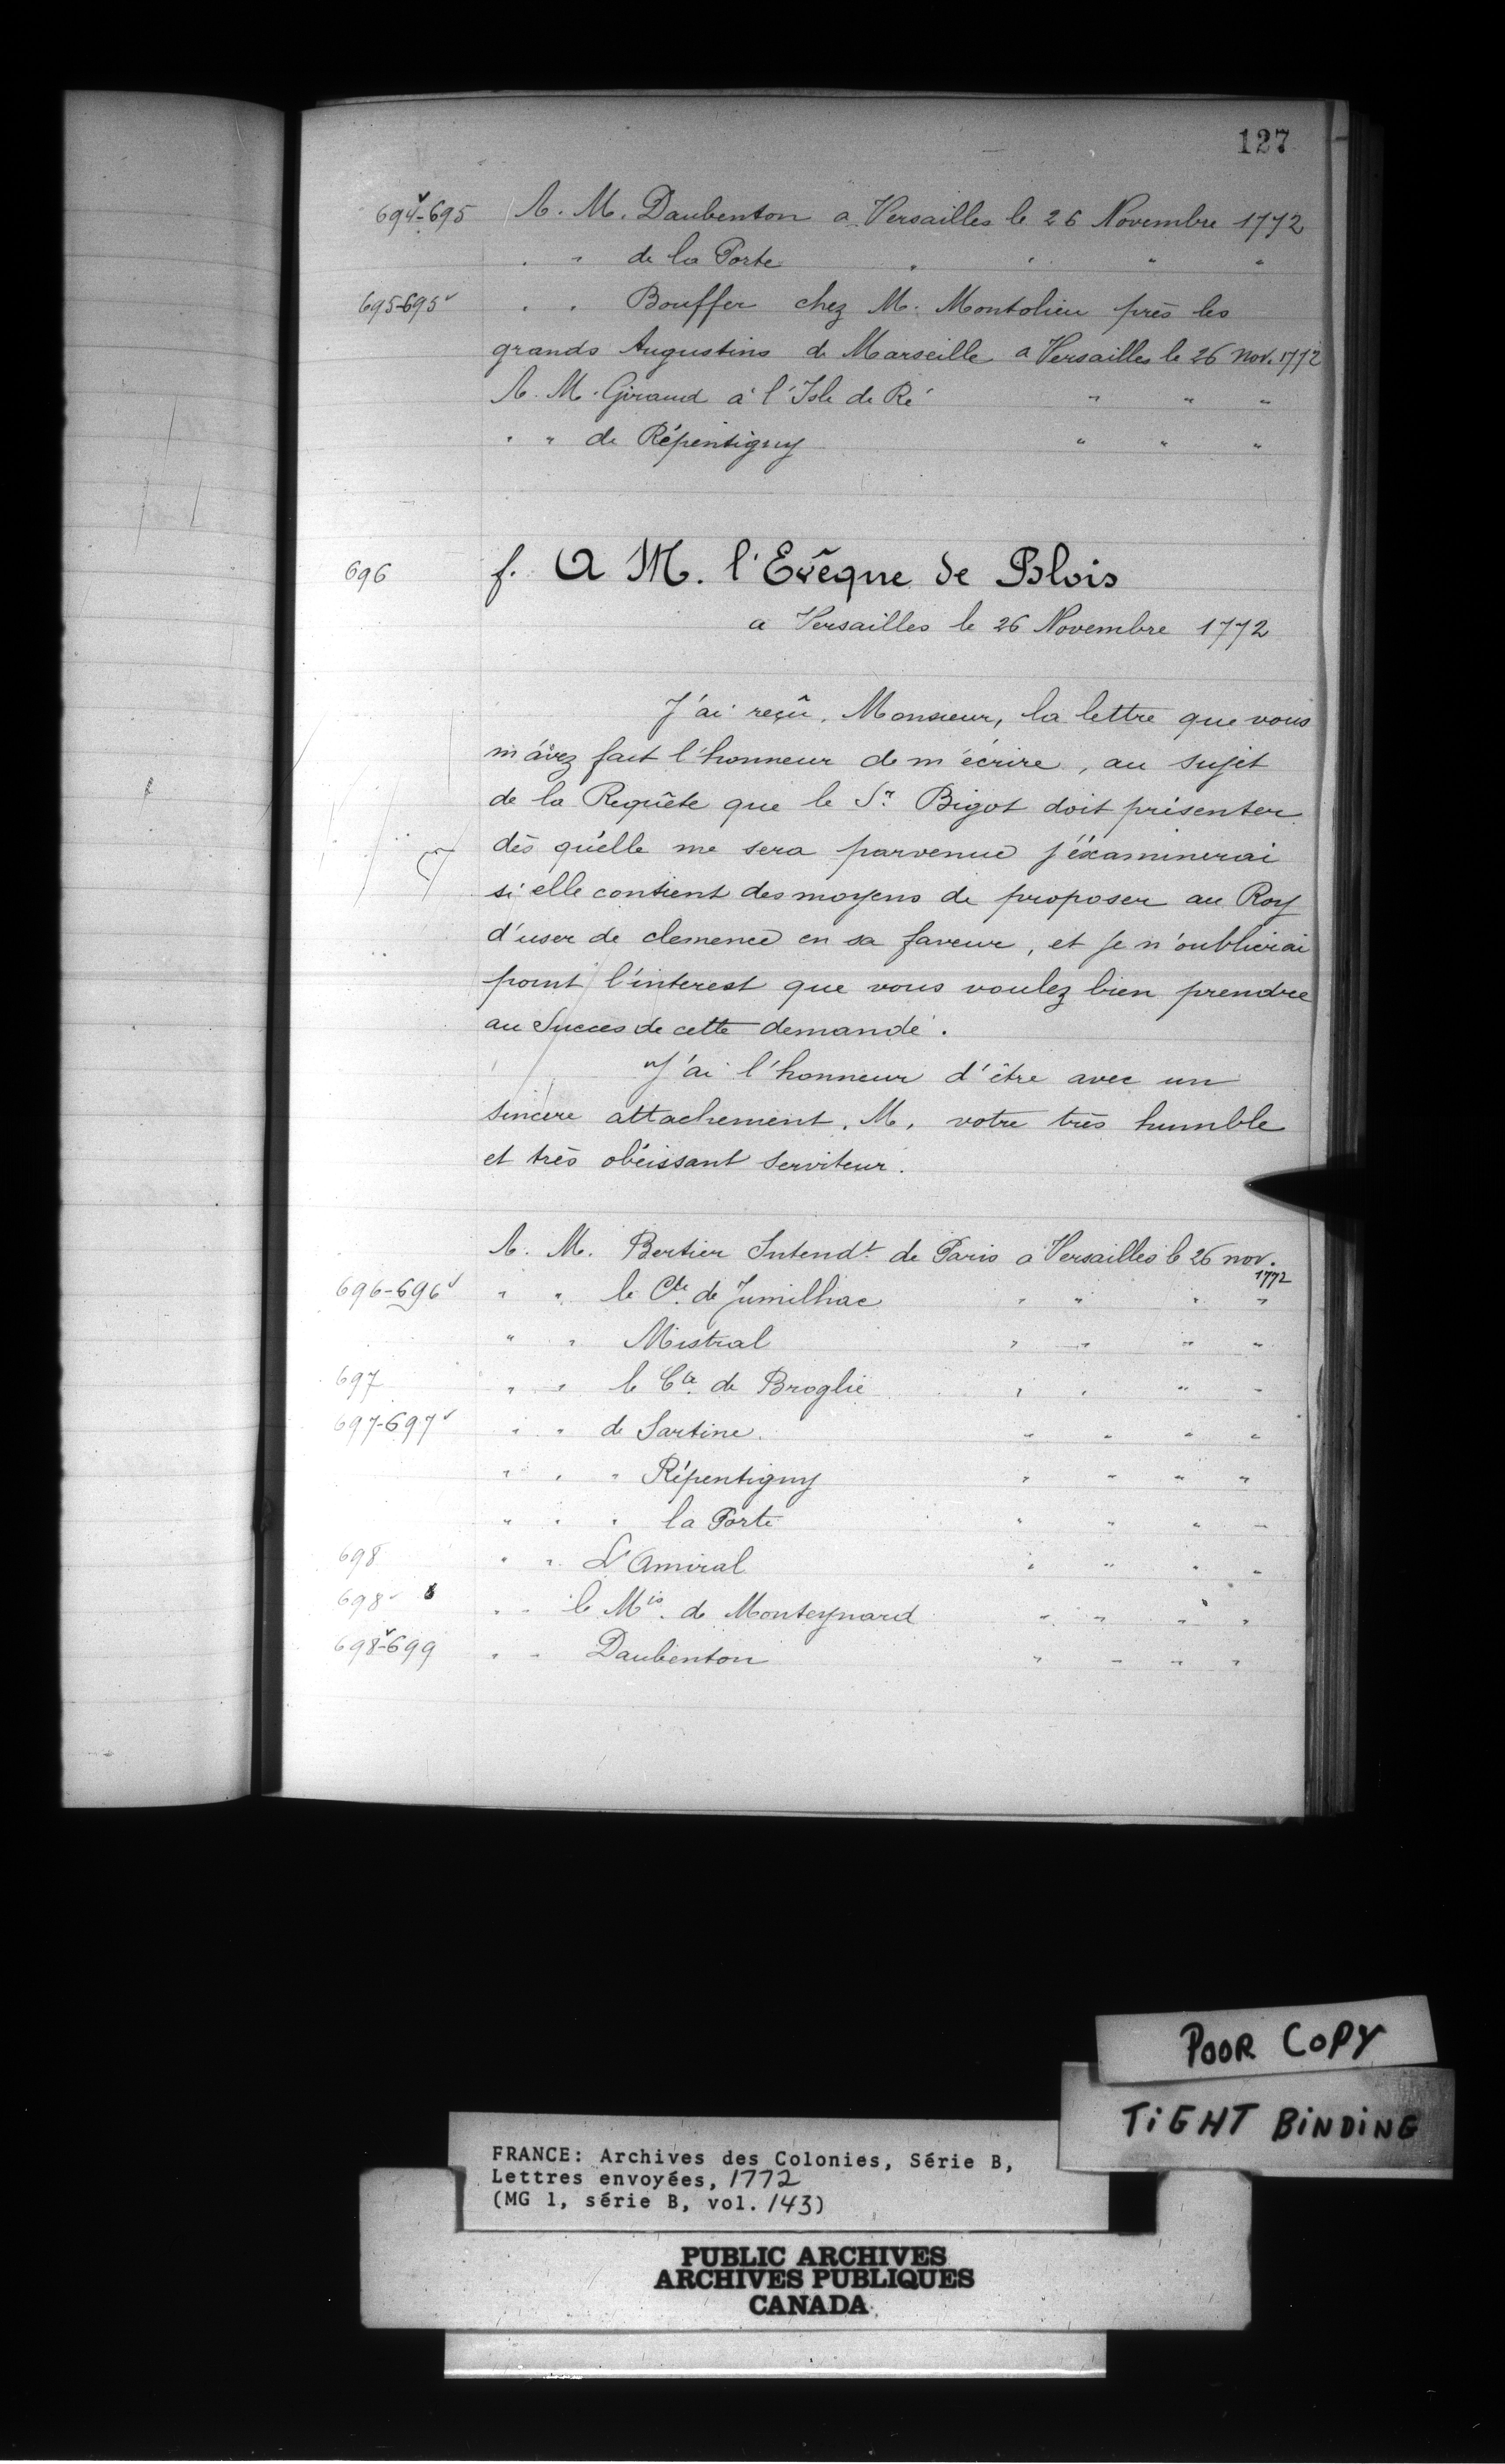 127
694v-695 A. M. Daubenton a Versailles le 26 Novembre 1772
" " de la Porte " " " "
695-695v " " Bouffer chez M. Montolieu près les
grands Augustins de Marseille a Versailles le 26 nov. 1772
A. M. Giraud à l'Isle de Ré " " "
" " de Répentigny " " "
696 f. A M. l'Evêque de Blois
a Versailles le 26 Novembre 1772
J'ai reçû, Monsieur, la lettre que vous
m'avez fait l'honneur de m'écrire, au sujet
de la Requête que le Sr. Bigot doit présenter
dès qu'elle me sera parvenue j'éxaminerai
si elle contient des moyens de proposer au Roy
d'user de clemence en sa faveur, et je n'oublierai
point l'interest que vous voulez bien prendre
au Succès de cette demande.
J'ai l'honneur d'être avec un
sincere attachement, M, votre très humble
et très obéissant serviteur.
A. M. Bertier Intendt. de Paris a Versailles le 26 nov.
1772
696-696v " " le Cte. de Jumilhac " " " "
" " Mistral " " " "
697 " " le Cte. de Broglie " " " "
697-697v " " de Sartine. " " " "
" " " Répentigny " " " "
" " " la Porte " " " "
698 " " L'Amiral " " " "
698v " " le Mis. de Monteynard " " " "
698v-699 " " Daubenton " " " "
POOR COPY
TIGHT BINDING
FRANCE: Archives des Colonies, Série B,
Lettres envoyées, 1772
(MG 1, série B, vol. 143)
PUBLIC ARCHIVES
ARCHIVES PUBLIQUES
CANADA